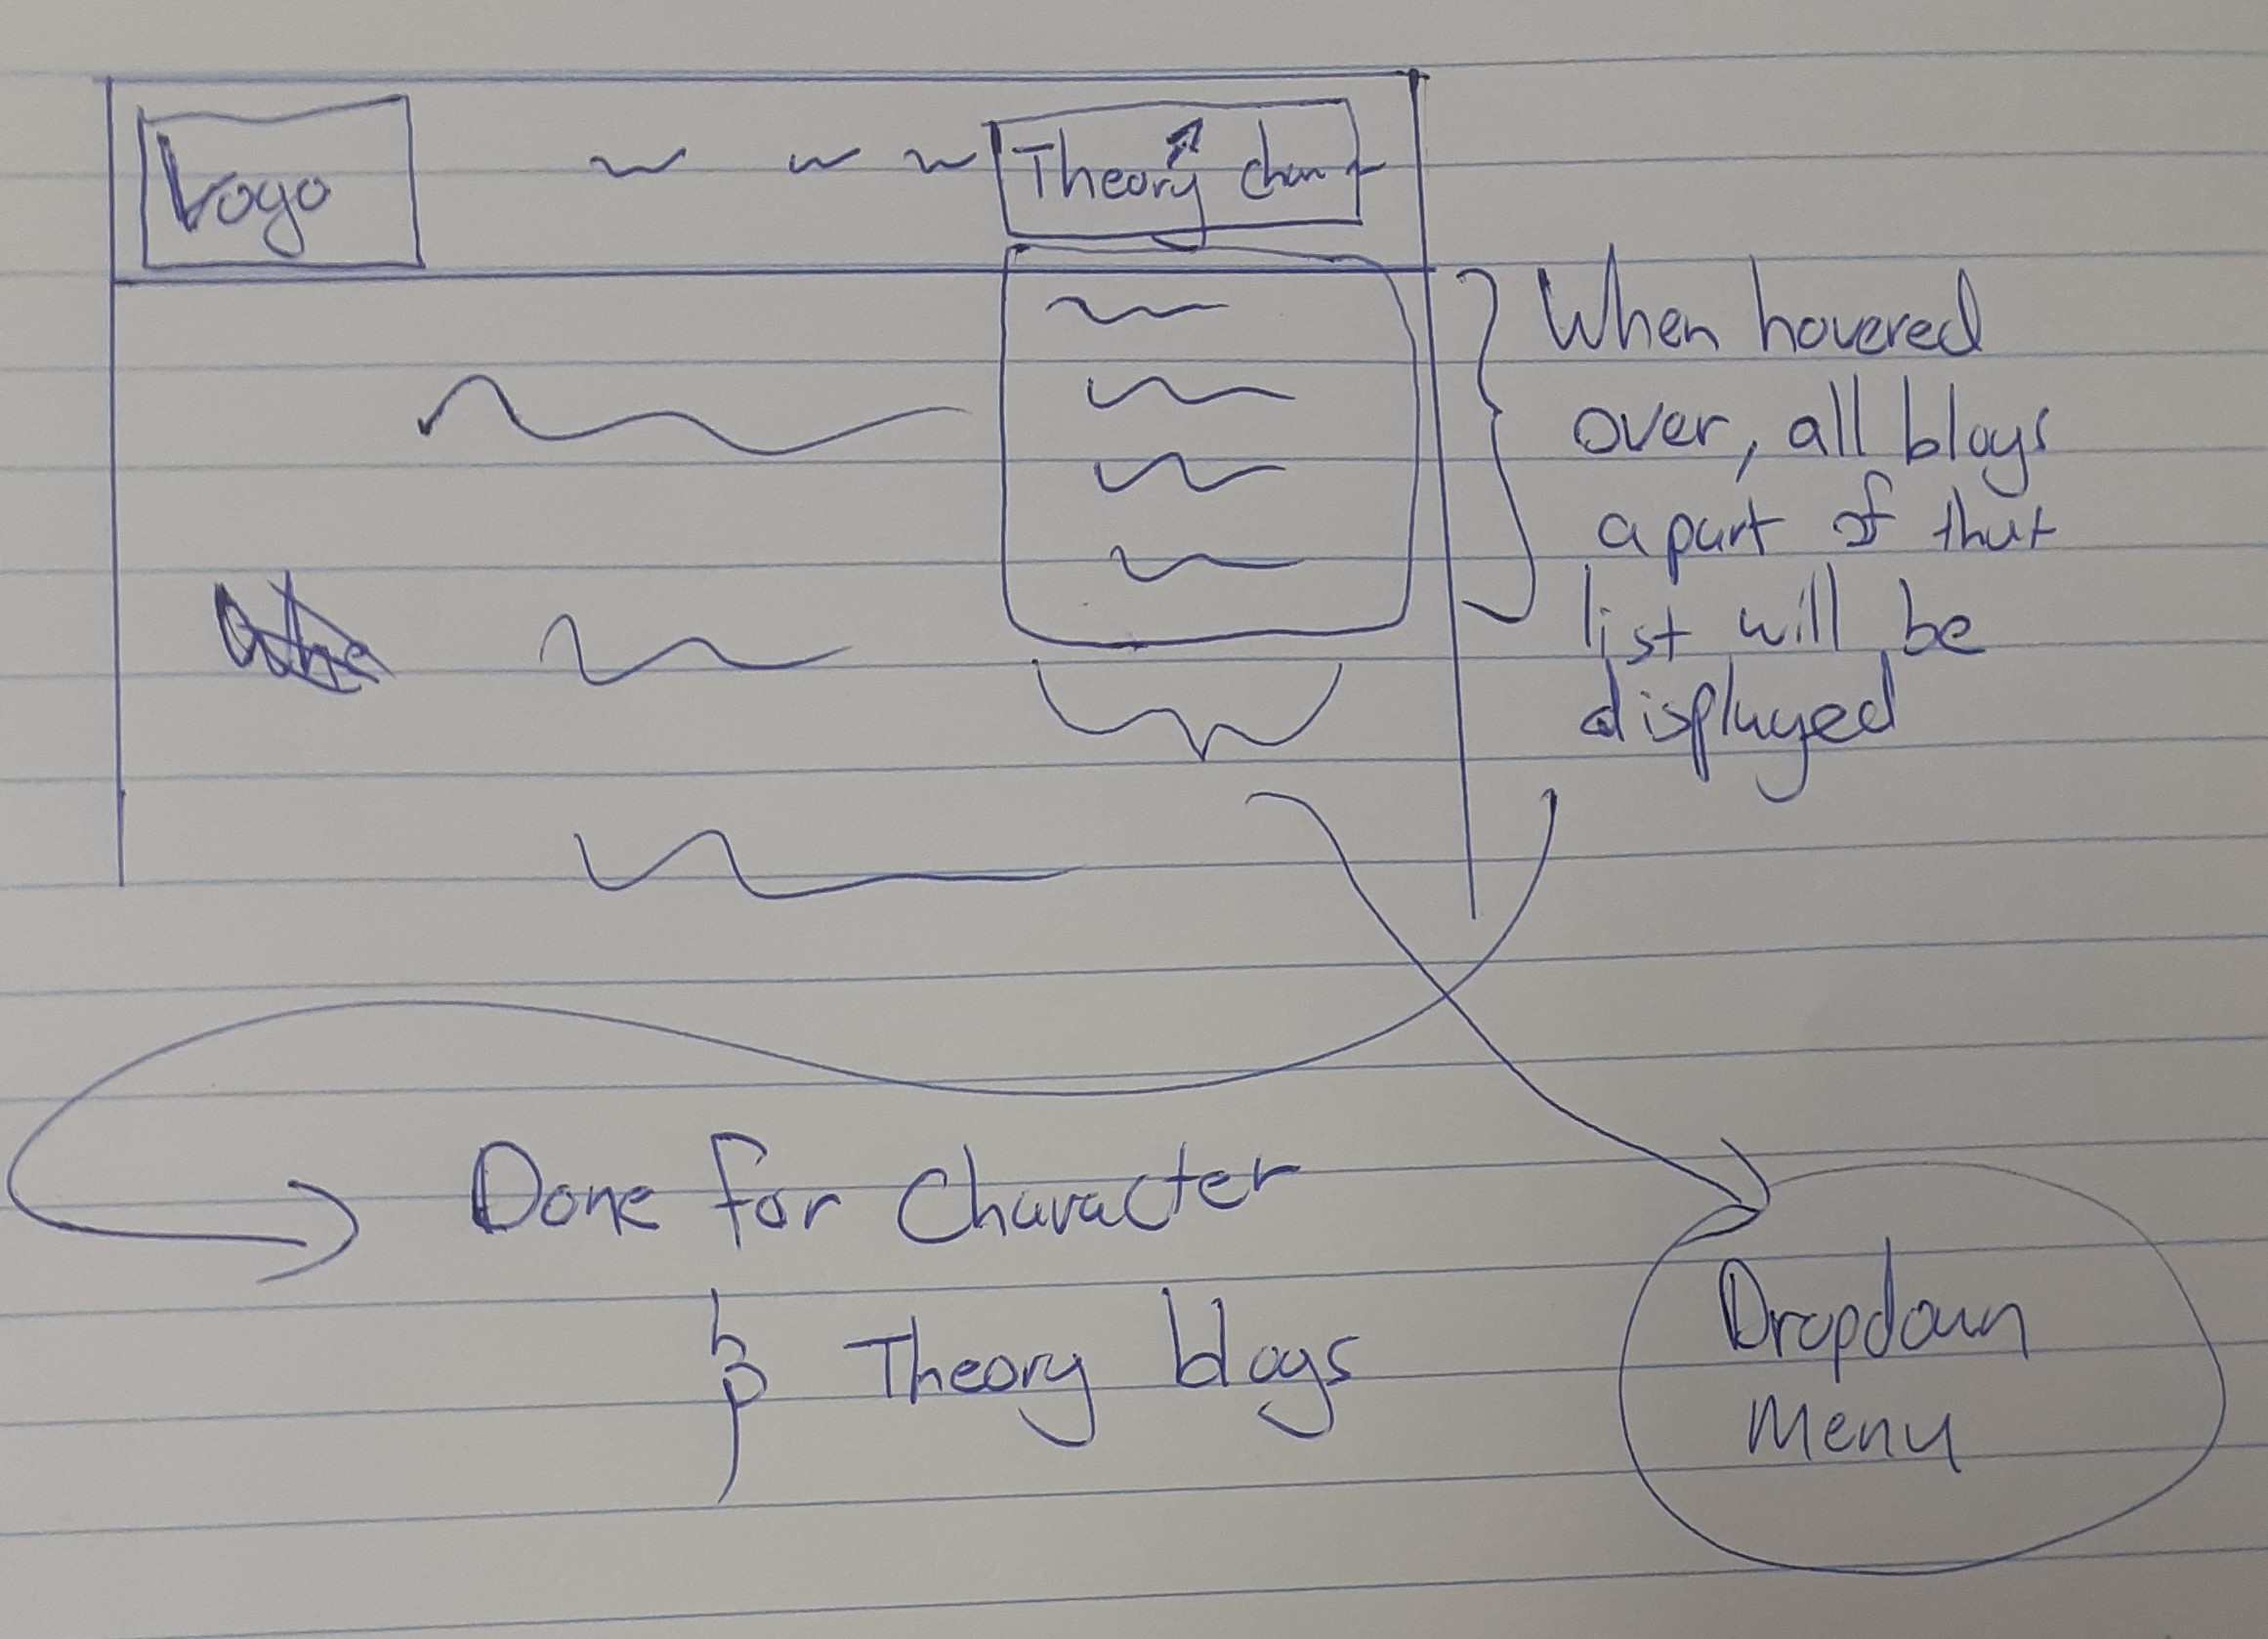 Logo
Theory
When hovered
over, all blogs
a part of that
list will be
displayed
Done for Character
& Theory blogs
Dropdown
Menu